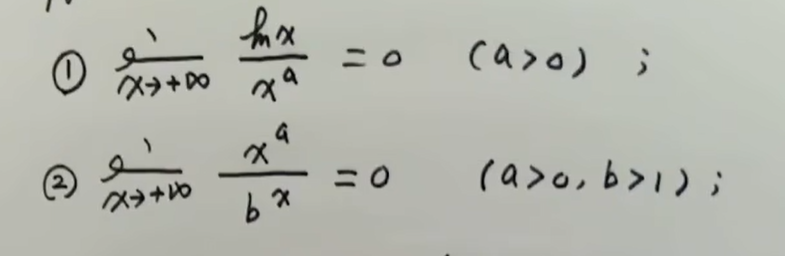 ① lim x→+∞ ln x / x^a = 0 (a>0) ;
② lim x→+∞ x^a / b^x = 0 (a>0, b>1) ;